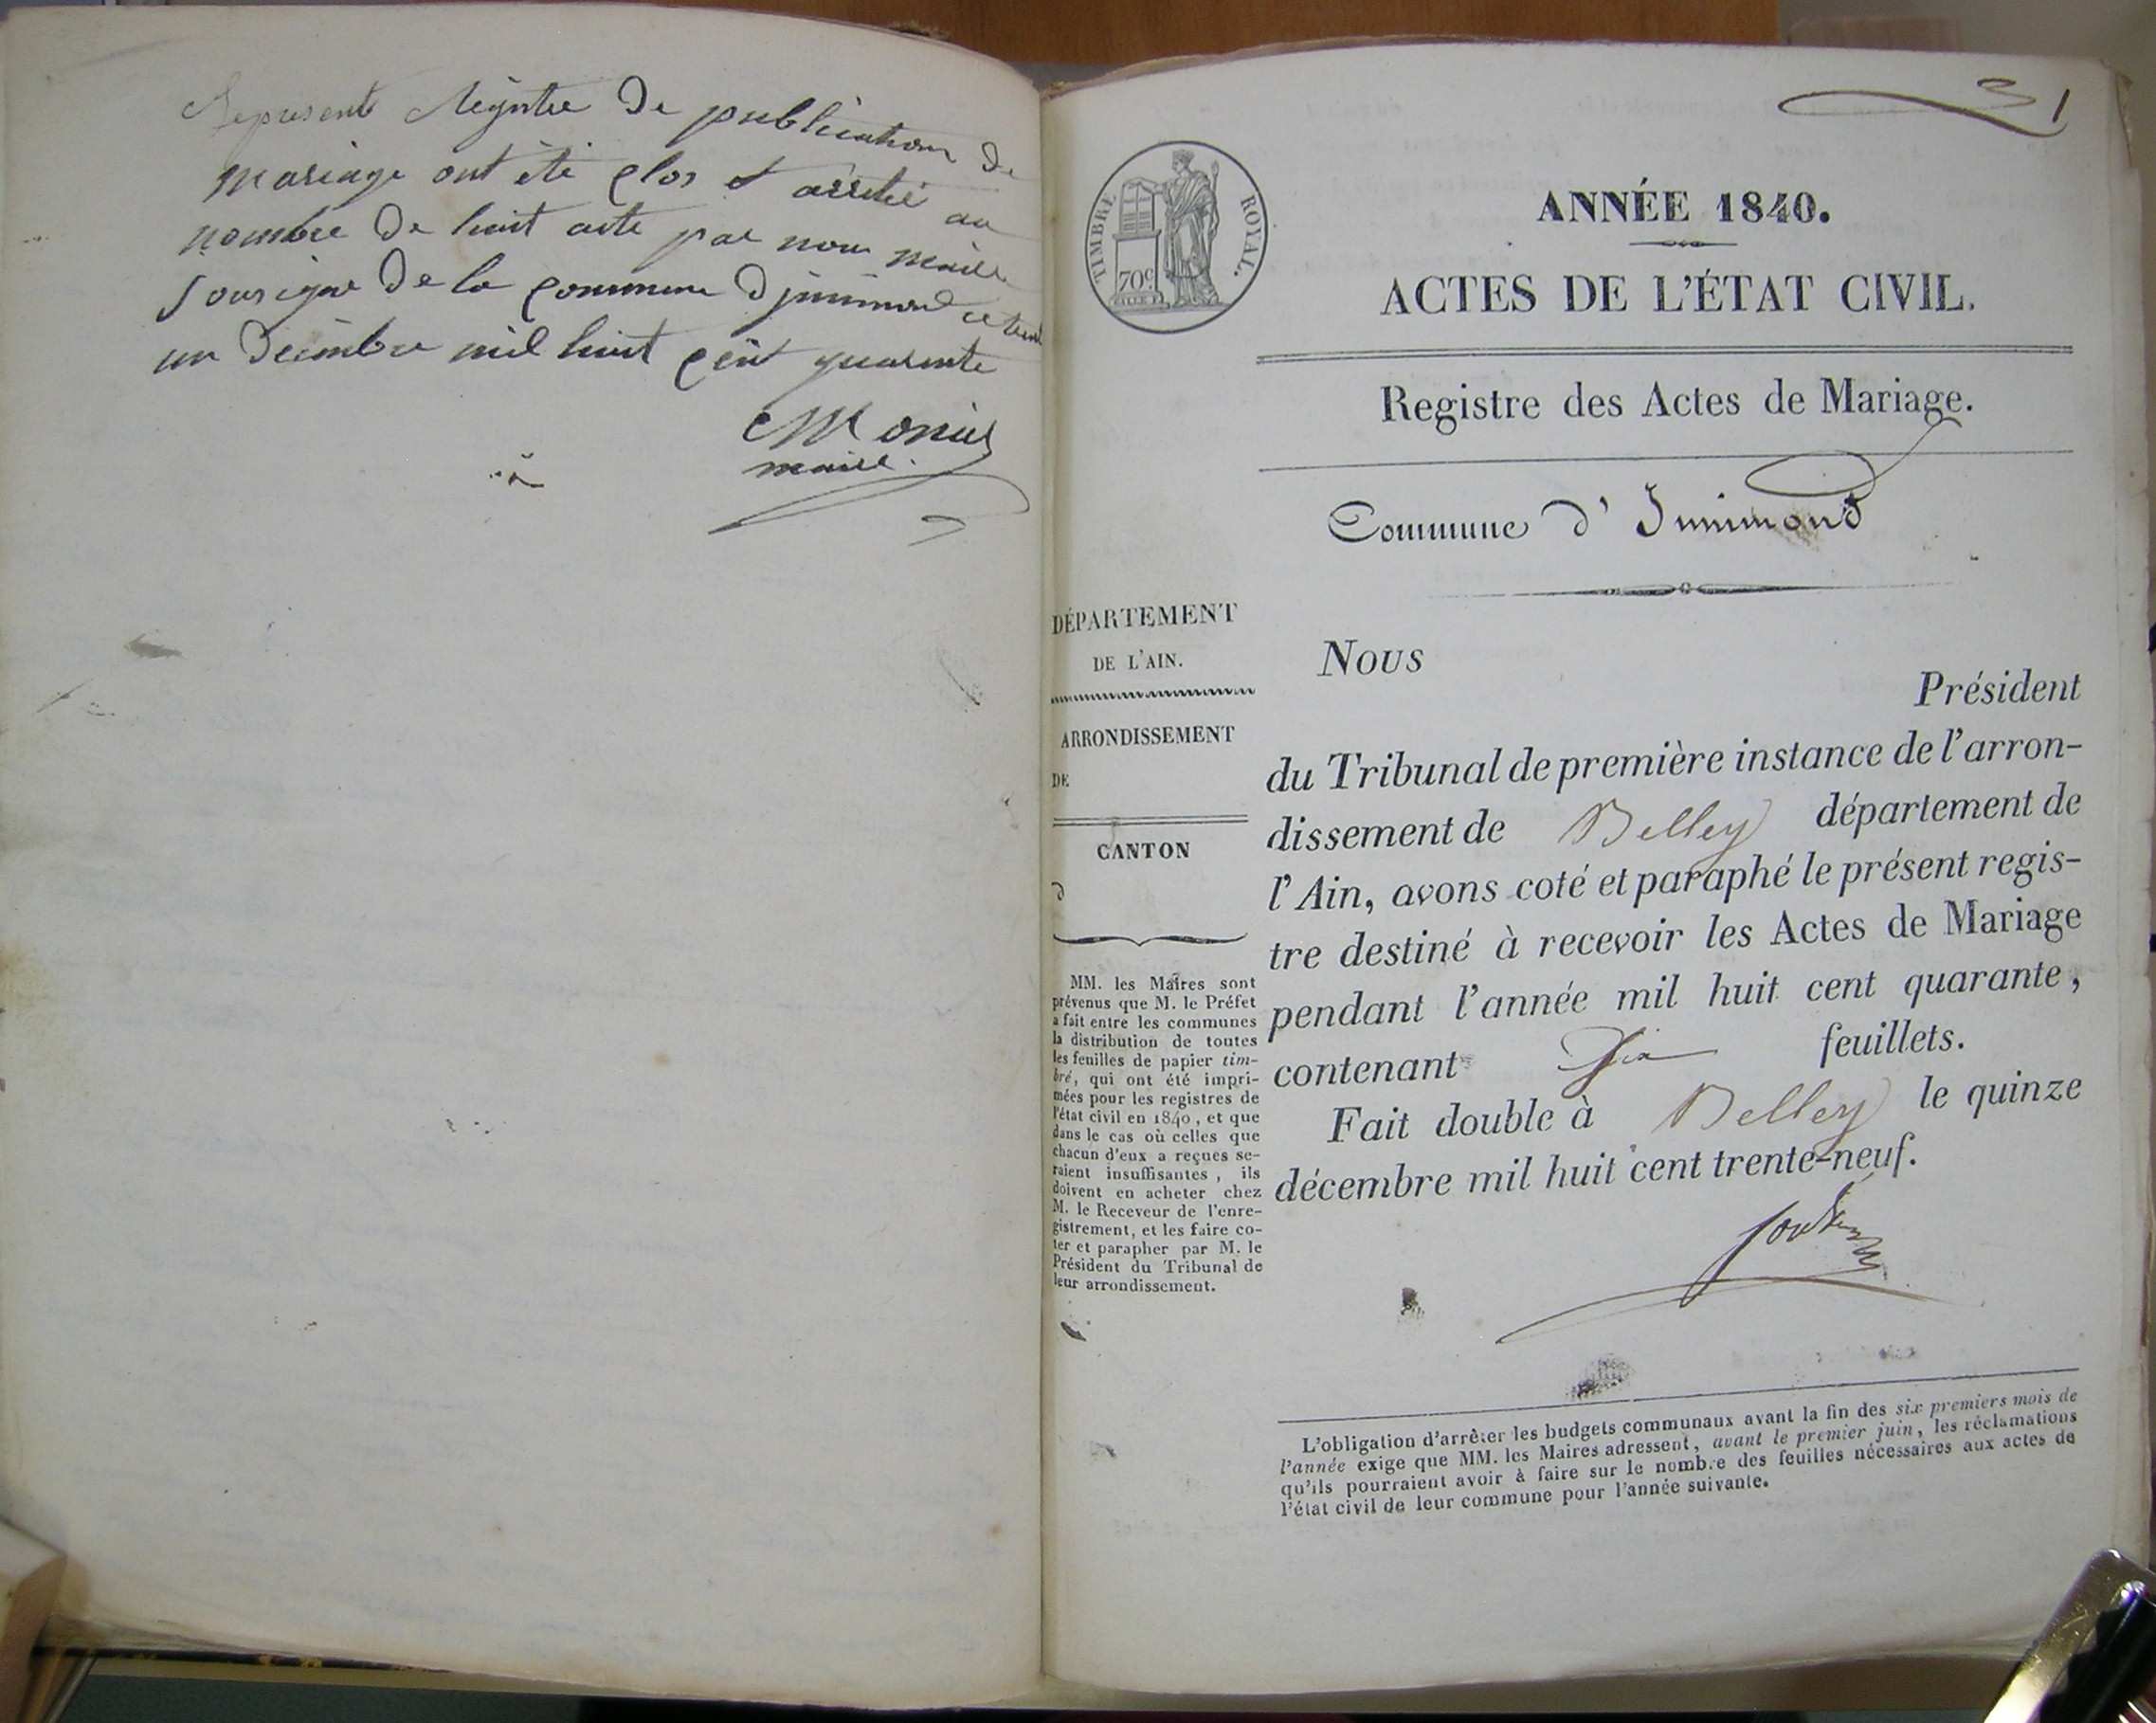 Le present Régistre de publication de
mariage ont été clos et arreté au
nombre de huit acte par nous maire
sousigne de la commune d'jnnimond ce trente
un decembre mil huit cent quarante
maire.
1
TIMBRE ROYAL.
70c
ANNÉE 1840.
ACTES DE L'ÉTAT CIVIL.
Registre des Actes de Mariage.
Commune d'Innimond
DÉPARTEMENT
DE L'AIN.
ARRONDISSEMENT
DE
CANTON
d
MM. les Maires sont
prévenus que M. le Préfet
a fait entre les communes
la distribution de toutes
les feuilles de papier tim-
bré, qui ont été impri-
mées pour les registres de
l'état civil en 1840, et que
dans le cas où celles que
chacun d'eux a reçues se-
raient insuffisantes, ils
doivent en acheter chez
M. le Receveur de l'enre-
gistrement, et les faire co-
ter et parapher par M. le
Président du Tribunal de
leur arrondissement.
Nous
Président
du Tribunal de première instance de l'arron-
dissement de Belley département de
l'Ain, avons coté et paraphé le présent regis-
tre destiné à recevoir les Actes de Mariage
pendant l'année mil huit cent quarante,
contenant Six feuillets.
Fait double à Belley le quinze
décembre mil huit cent trente-neuf.
L'obligation d'arrêter les budgets communaux avant la fin des six premiers mois de
l'année exige que MM. les Maires adressent, avant le premier juin, les réclamations
qu'ils pourraient avoir à faire sur le nombre des feuilles nécessaires aux actes de
l'état civil de leur commune pour l'année suivante.